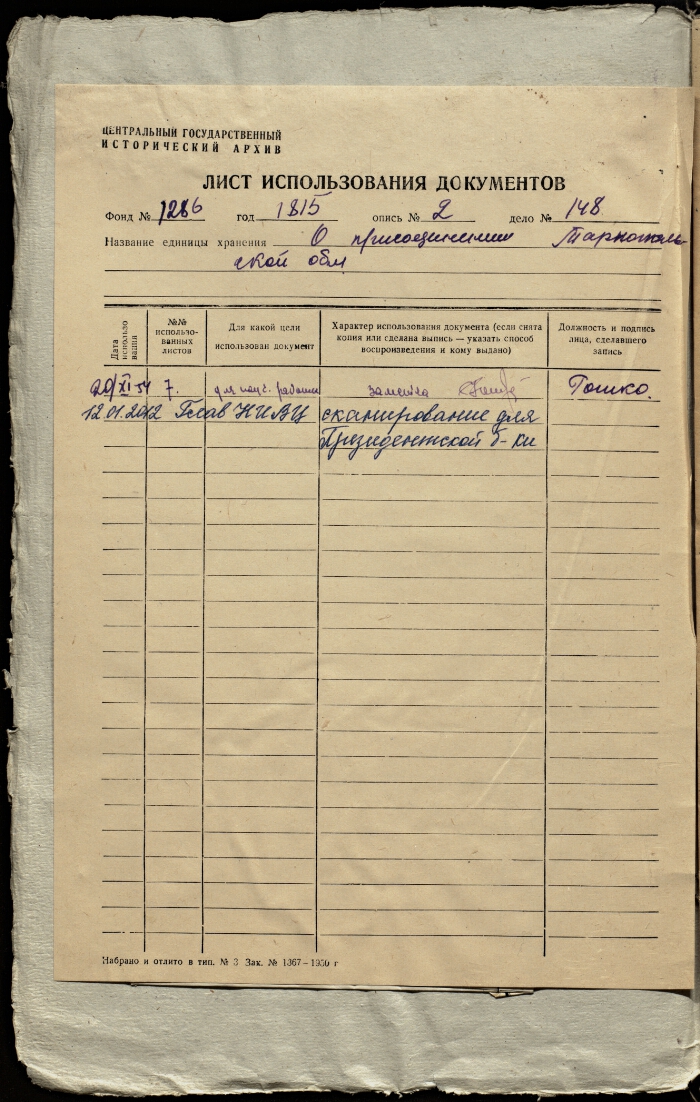 ЦЕНТРАЛЬНЫЙ ГОСУДАРСТВЕННЫЙ
ИСТОРИЧЕСКИЙ АРХИВ
ЛИСТ ИСПОЛЬЗОВАНИЯ ДОКУМЕНТОВ
Фонд № 1286 год 1815 опись № 2 дело № 148
Название единицы хранения О присоединении Тарнополь-
ской обл
Дата использования
№№ использо-ванных листов
Для какой цели использован документ
Характер использования документа (если снята копия или сделана выпись — указать способ воспроизведения и кому выдано)
Должность и подпись лица, сделавшего запись
20/XI-54 7. для науч. работы Гошко.
12.01.2012 сканирование для
Президентской б-ки
Набрано и отлито в тип. № 3 Зак. № 1367—1950 г